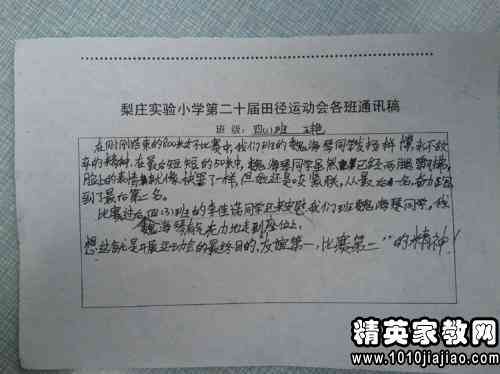 梨庄实验小学第二十届田径运动会各班通讯稿
班级：四(1)班
在刚刚结束的800米才比赛中，我们班的魏海琴同学发扬拼搏，永不放
弃的精神，在最后短短的50米中，魏海琴同学虽然已经两腿
脸上的表情就像快哭了一样，但她还是咬紧牙，从最后一名，奋力
到了最后第二名。
比赛过后四(3)班的李佳诺同学还来安慰我们班魏海琴同学，
魏海琴有气无力地走到座位上。
想：这就是开展运动会的最终目的，友谊第一，比赛第二”的精神！
精英家教网
www.1010jiajiao.com